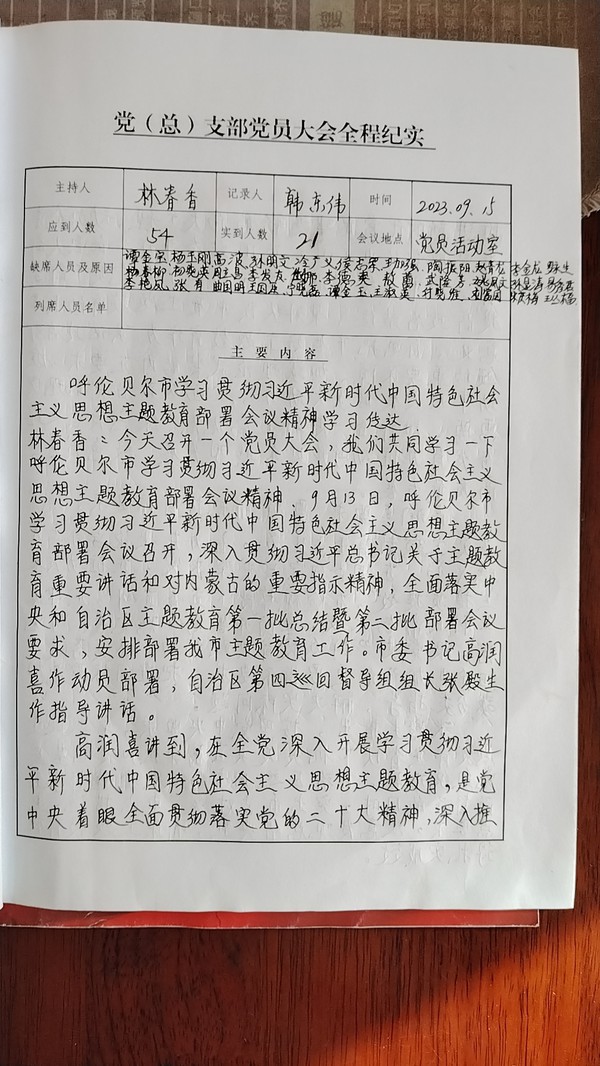 党（总）支部党员大会全程纪实
主持人 林春香 记录人 韩东伟 时间 2023.09.15
应到人数 54 实到人数 21 会议地点 党员活动室
缺席人员及原因 谭金宝 杨玉刚 高波 孙明文
李艳凤 张有
列席人员名单
主要内容
呼伦贝尔市学习贯彻习近平新时代中国特色社会
主义思想主题教育部署会议精神学习传达
林春香：今天召开一个党员大会，我们共同学习一下
呼伦贝尔市学习贯彻习近平新时代中国特色社会主义
思想主题教育部署会议精神．9月13日，呼伦贝尔市
学习贯彻习近平新时代中国特色社会主义思想主题教
育部署会议召开，深入贯彻习近平总书记关于主题教
育重要讲话和对内蒙古的重要指示精神，全面落实中
央和自治区主题教育第一批总结暨第二批部署会议
要求，安排部署我市主题教育工作。市委书记高润
喜作动员部署，自治区第四巡回督导组组长张殿生
作指导讲话。
高润喜讲到，在全党深入开展学习贯彻习近
平新时代中国特色社会主义思想主题教育，是党
中央着眼全面贯彻落实党的二十大精神，深入推